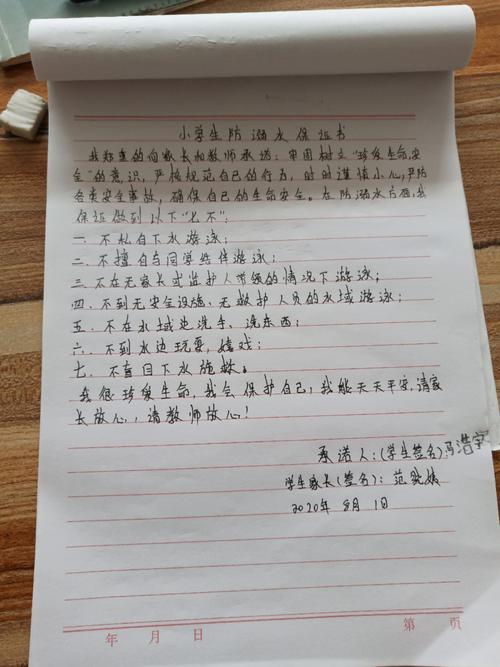 小学生防溺水保证书
我郑重的向家长和教师承诺：牢固树立“珍爱生命,安
全”的意识，严格规范自己的行为，时时谨慎小心,严防
各类安全事故，确保自己的生命安全。在防溺水方面,我
保证做到以下“七不”：
一.不私自下水游泳；
二.不擅自与同学结伴游泳；
三.不在无家长或监护人带领的情况下游泳；
四.不到无安全设施、无救护人员的水域游泳；
五.不在水域边洗手、洗东西；
六.不到水边玩耍，嬉戏；
七.不盲目下水施救。
我很珍爱生命，我会保护自己，我能天天平安,请家
长放心，请教师放心！
承诺人：(学生签名)冯浩宇
学生家长(签名)：范
2020年8月1日
年 月 日 第 页